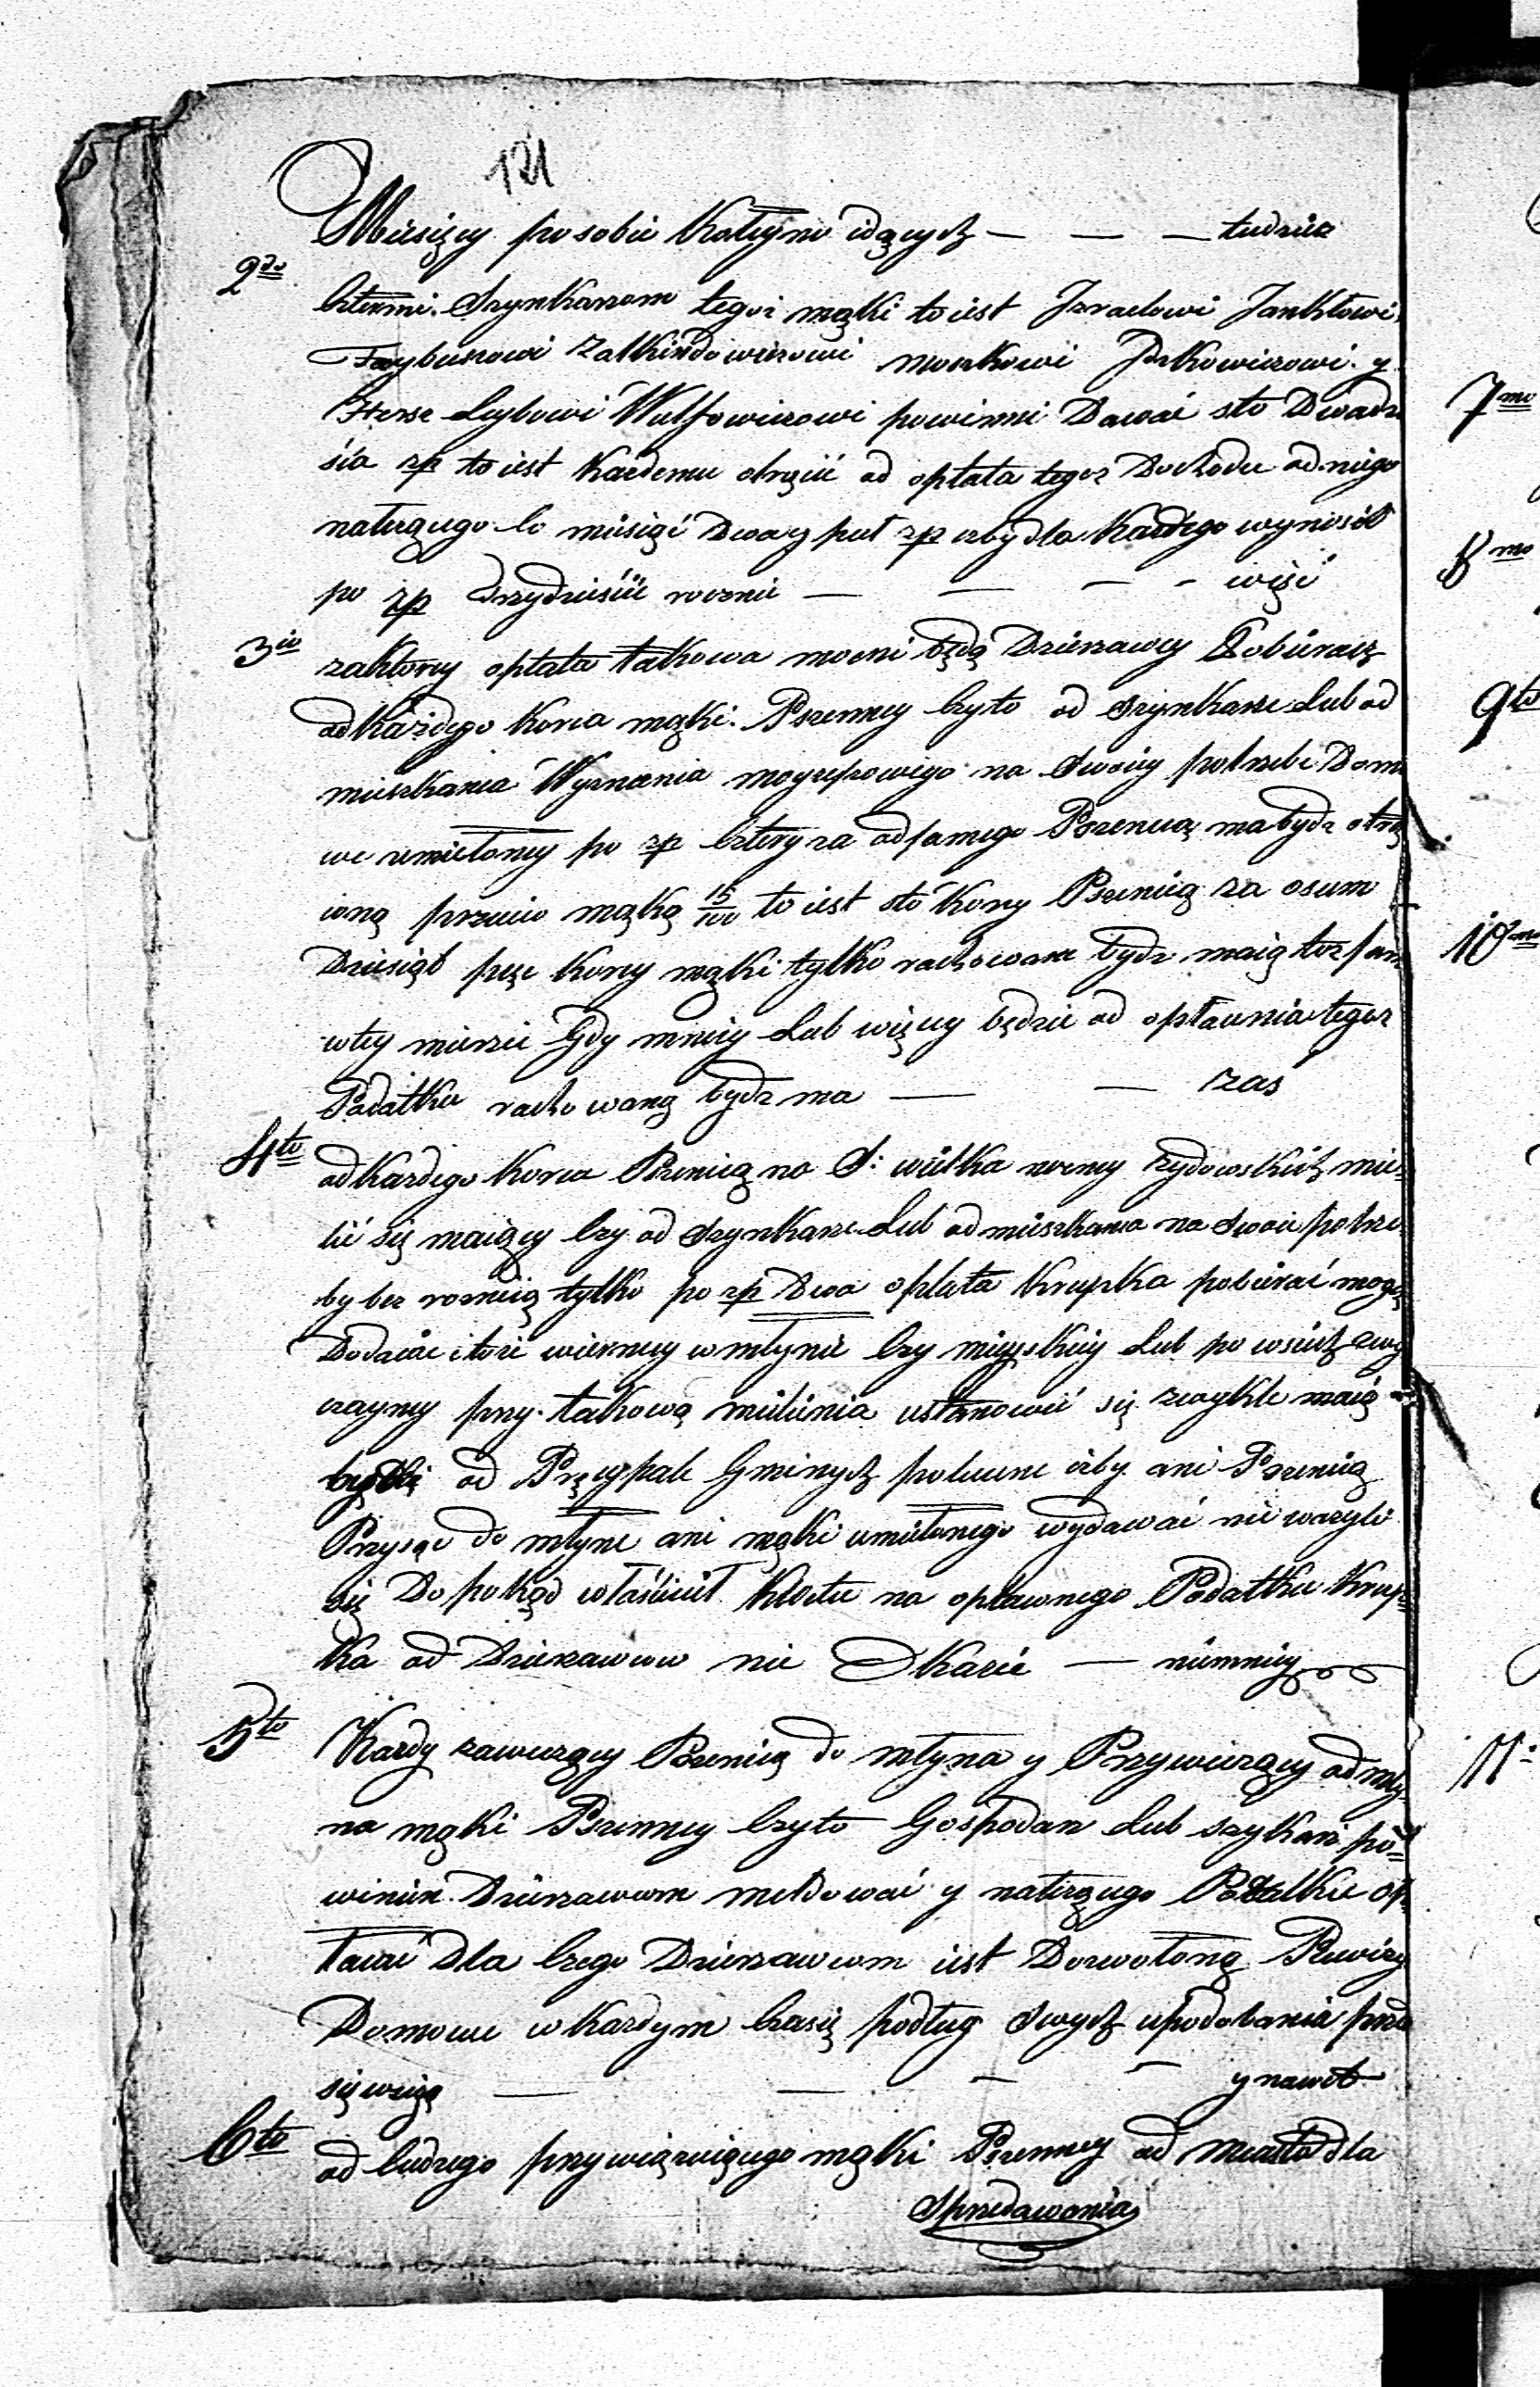 121
Miesięcy po sobie Kolejno idących — — — tudzież
2do
czterem Szynkarzom tegoż mąki to iest Izraelowi Jankłowi,
Faybusiowi Zalkindowiczowi Moszkowi Jckowiczowi y
Herse Leybowi Wulfowiczowi powinni Dawać sto Dwadzie
śia zp to iest Każdemu otrącić od opłata tegoż Dochodu od niego
należącego co miesiąć Dwa y puł zp izby dla Każdego wynosił
po zp Trzydzieśći rocznie — — — - więć
3io
zaktory opłata takowa mocni będą Dzierzawcy Pobierać
od każdego Korca mąki Pszenney czyto od Szynkarze Lub od
mieszkania Wyznania moyzeszowego na Swoiey potrzebe Domo
we zmieloney po zp cztery za od samego Pszenicą ma bydz otrą
ioną przeciw mąką 15/100 to iest sto Korcy Pszenicą za osum
Dziesiąt pięc Korcy mąki tylko rachowane bydz maią toz sam
w tey mierze Gdy mniey Lub więcey będzie od opłacenia tegoz
Podatku rachowaną bydz ma — — zas
4to
od Każdego Korca Pszenicą na S: wielka nocney żydowskich mie-
lić się maiący czy od Szynkarze Lub od mieszkania na Swoie potrze-
by bez roznicą tylko po zp Dwa opłata Krupka pobierać mogą
Dodaiąc itoż wierney w młynie czy mieyskiey Lub po wsiach
czayney przy takową mielenia ustanowić się zwykle maią
od Gminych polecene izby ani Pszenicą
Przysąc do młyne ani mąki umielonego wydawać nie wazyli
się Dopokąd właśćićiel Kwitu na opławnego Podatku Krup-
ka od Dzierzawcow nie Okazie — niemniey
5to
Kazdy zawiezący Pszenicą do młyna y Przywiezący od mły-
na mąki Pszenney czyto Gospodarz Lub szykarz po-
winien Dzierzawcom meldować y należącego Podatku op-
łacać Dla czego Dzierzawcom iest Dozwoloną Rewizy
Domowe w Każdym czasie podług Swych upodobania prze
się wzią — — - — y nawet
6to
od cudzego przywiązuiącego mąki Pszenney od miasta dla
Sprzedawania
7mo
8mo
9to
10mo
11: